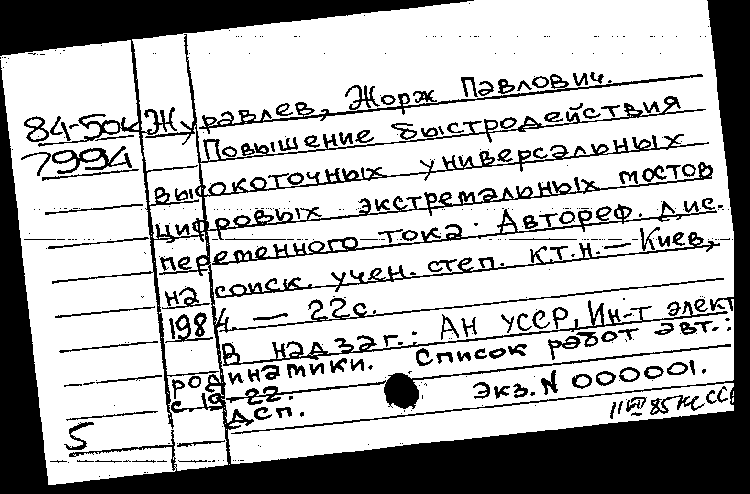 84-50к Журавлев, Жорж Павлович.
7994 Повышение быстродействия
высокоточных универсальных
цифровых экстремальных мостов
переменного тока: Автореф. дис.
на соиск. учен. степ. к.т.н. — Киев,
1984. — 22с.
В надзаг.: АН УССР, Ин-т элект
родинамики. Список работ авт.:
с. 19-22.
ДСП. Экз. N 000001.
5